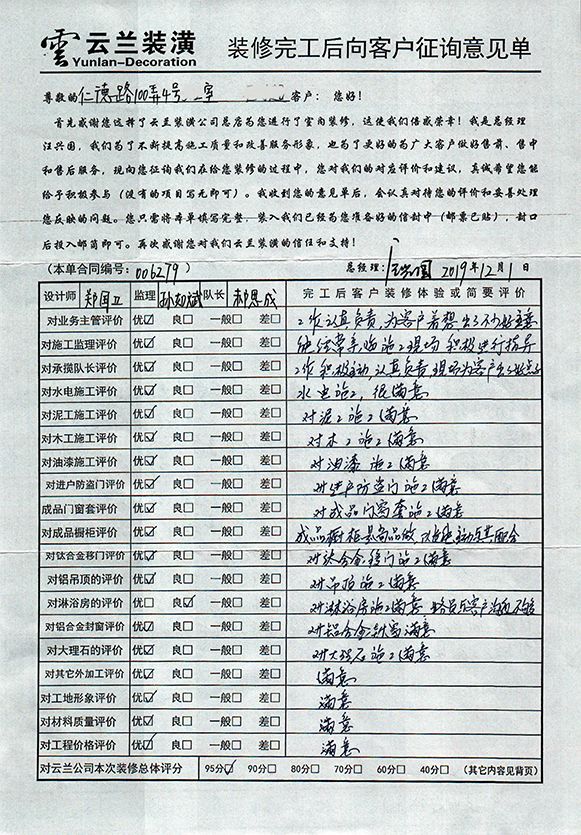 雲 云兰装潢
Yunlan-Decoration
装修完工后向客户征询意见单
尊敬的仁德路100弄4号 室 客户：您好！
首先感谢您选择了云兰装潢公司总店为您进行了室内装修，这使我们倍感荣幸！我是总经理
汪兴国，我们为了不断提高施工质量和改善服务形象，也为了更好的为广大客户做好售前、售中
和售后服务，现向您征询我们在给您装修的过程中，您对我们的对应评价和建议，真诚希望您能
给予积极参与（没有的项目写无即可）。我收到您的意见单后，会认真对待您的评价和妥善处理
您反映的问题。您只需将本单填写完整，装入我们已经为您准备好的信封中（邮票已贴），封口
后投入邮筒即可。再次感谢您对我们云兰装潢的信任和支持！
（本单合同编号：006279） 总经理：汪兴国 2019年12月1日
设计师 郑国卫 监理 孙如斌 队长 郝思成 完工后客户装修体验或简要评价
对业务主管评价 优☑ 良□ 一般□ 差□ 工作认真负责，为客户着想
对施工监理评价 优☑ 良□ 一般□ 差□ 能经常亲临施工现场 积极进行指导
对承揽队长评价 优☑ 良□ 一般□ 差□ 工作积极主动，认真负责 现场为客户
对水电施工评价 优☑ 良□ 一般□ 差□ 水电施工，很满意
对泥工施工评价 优☑ 良□ 一般□ 差□ 对泥工施工满意
对木工施工评价 优☑ 良□ 一般□ 差□ 对木工施工满意
对油漆施工评价 优☑ 良□ 一般□ 差□ 对油漆施工满意
对进户防盗门评价 优☑ 良□ 一般□ 差□ 对进户防盗门施工满意
成品门窗套评价 优☑ 良□ 一般□ 差□ 对成品门窗套施工满意
对成品橱柜评价 优☑ 良□ 一般□ 差□ 成品橱柜 配合
对钛合金移门评价 优☑ 良□ 一般□ 差□ 对钛合金移门施工满意
对铝吊顶的评价 优☑ 良□ 一般□ 差□ 对吊顶施工满意
对淋浴房的评价 优□ 良☑ 一般□ 差□ 对淋浴房施工满意 与客户沟通不够
对铝合金封窗评价 优☑ 良□ 一般□ 差□ 对铝合金封窗满意
对大理石的评价 优☑ 良□ 一般□ 差□ 对大理石施工满意
对其它外加工评价 优☑ 良□ 一般□ 差□ 满意
对工地形象评价 优☑ 良□ 一般□ 差□ 满意
对材料质量评价 优☑ 良□ 一般□ 差□ 满意
对工程价格评价 优☑ 良□ 一般□ 差□ 满意
对云兰公司本次装修总体评分 95分☑ 90分□ 80分□ 70分□ 60分□ 40分□ （其它内容见背页）